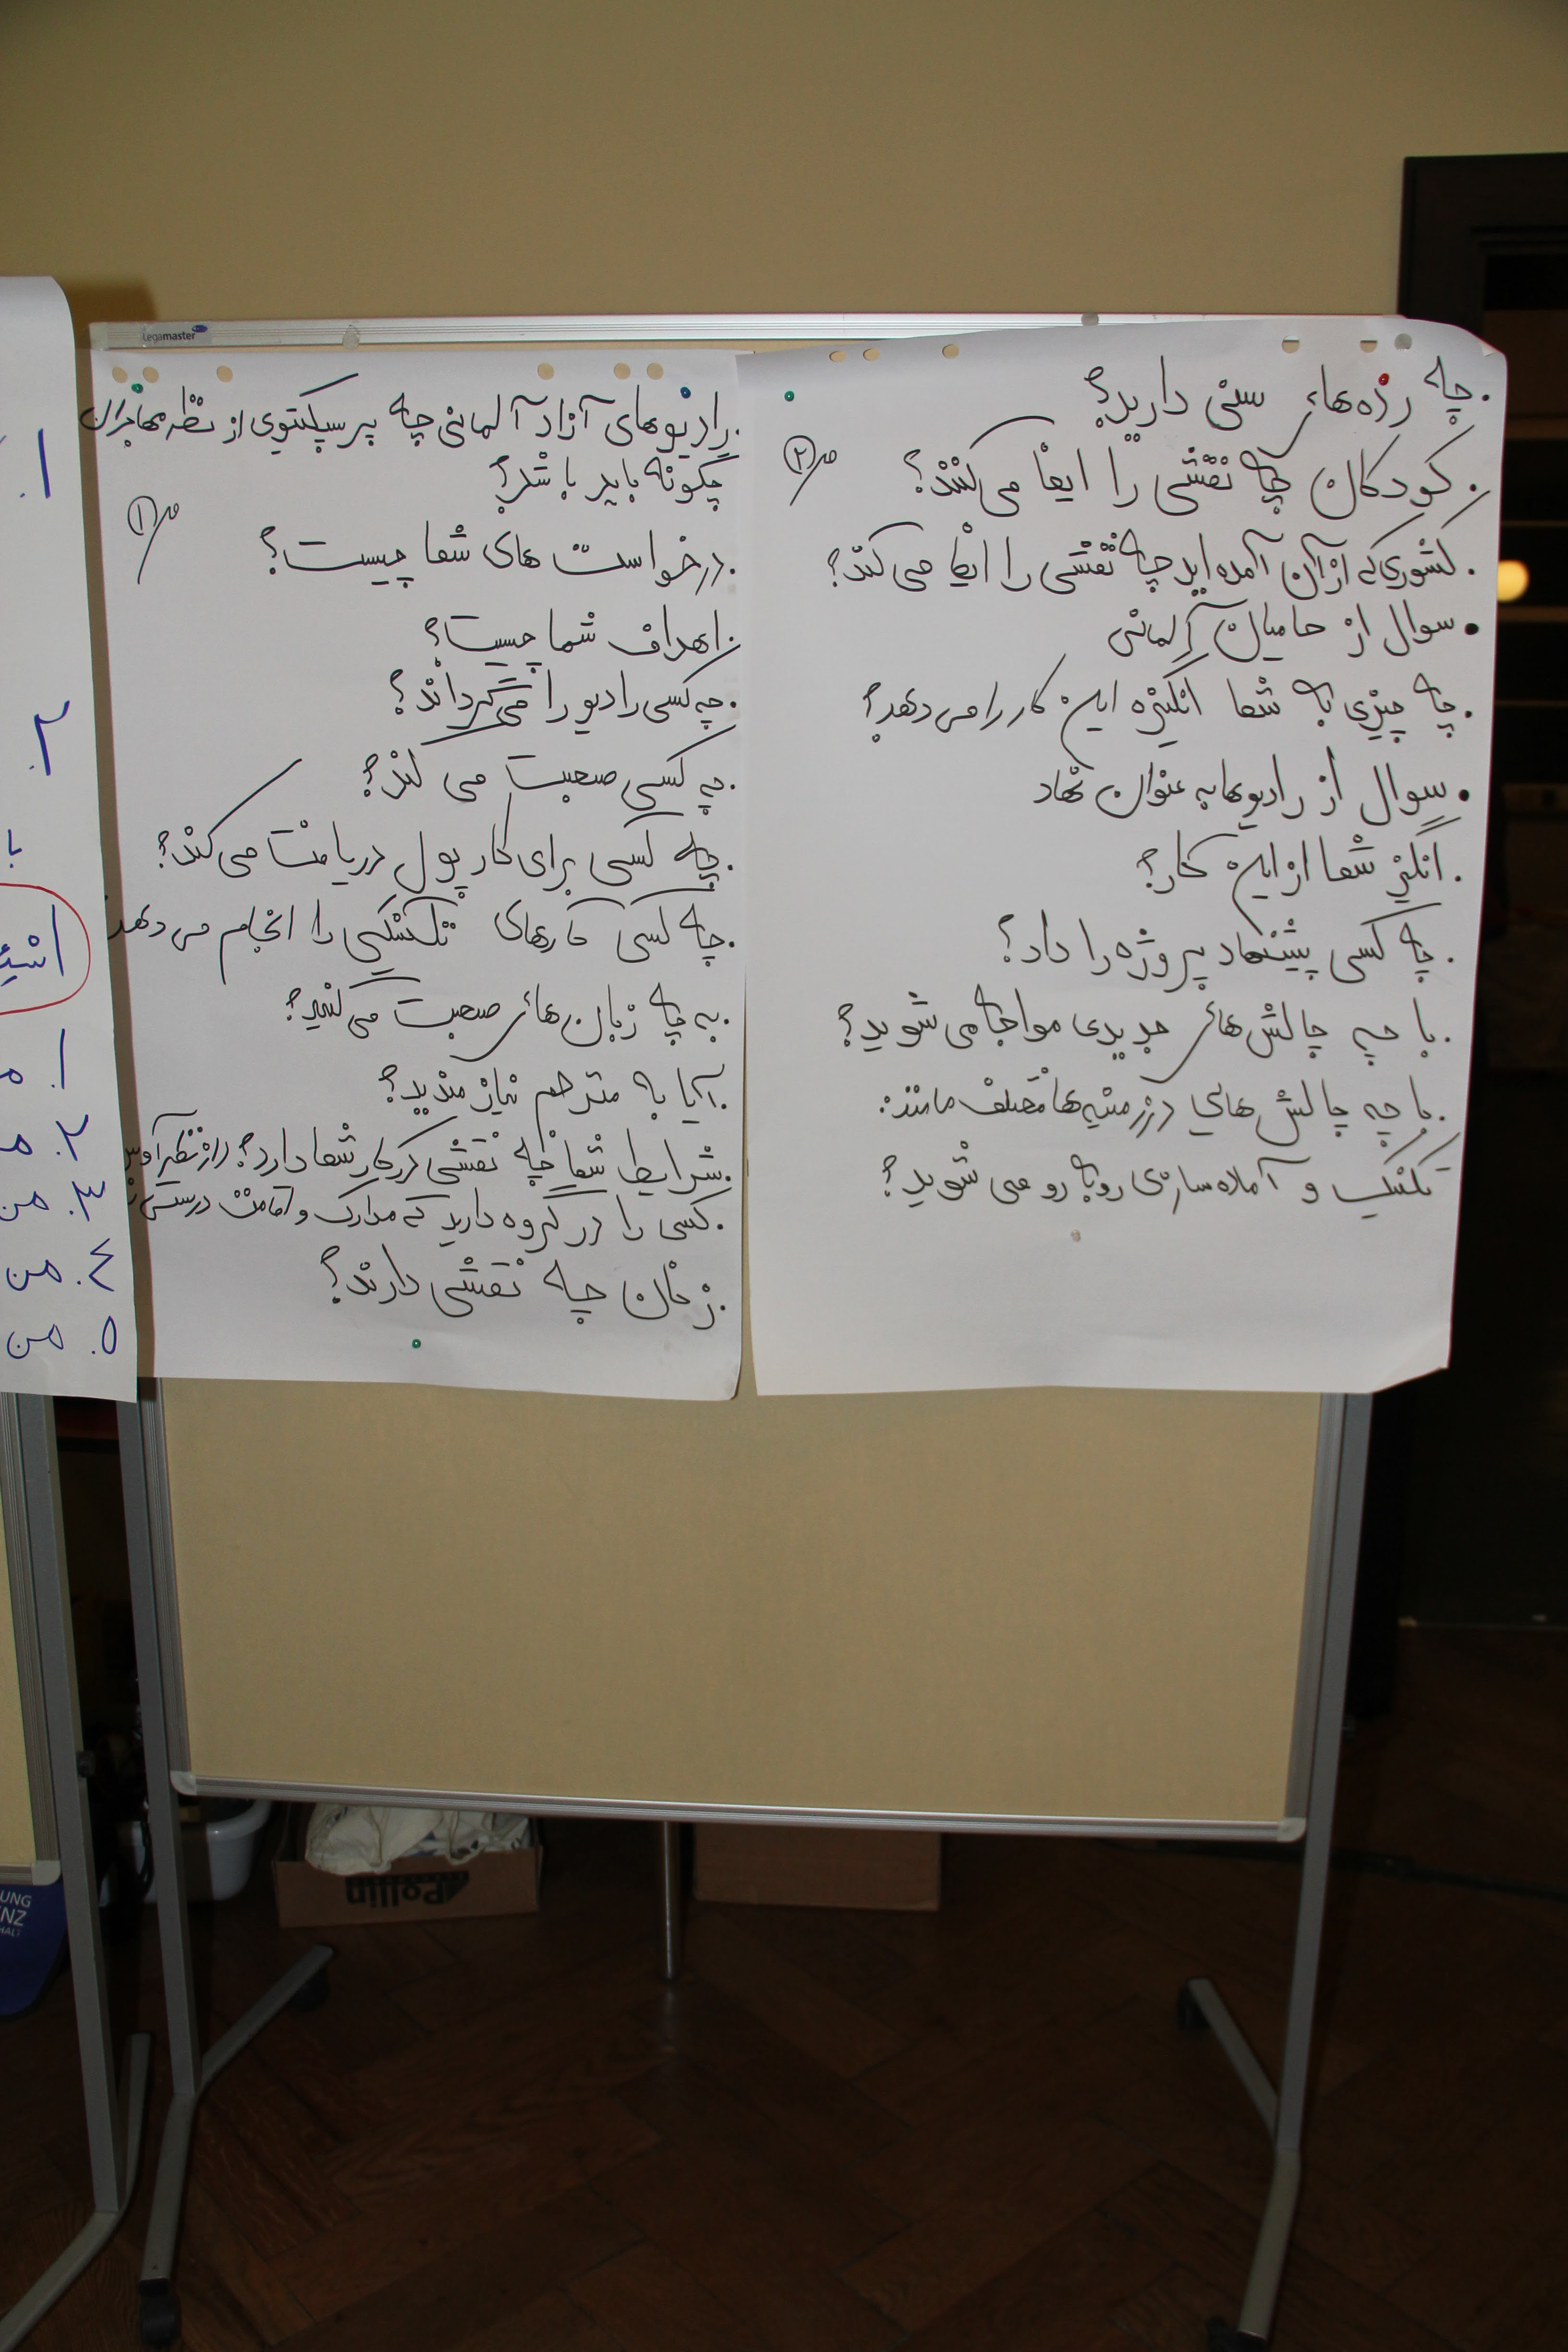 Legamaster
.رادیوهای آزاد آلمانی چه پرسپکتوی از نظر مهاجران
چگونه باید باشد؟
ص ۱
.درخواست های شما چیست؟
.اهداف شما چیست؟
.چه کسی رادیو را می گرداند؟
.چه کسی صحبت می کند؟
.چه کسی برای کار پول دریافت می کند؟
.چه کسی کارهای تکنیکی را انجام می دهد
.به چه زبان های صحبت می کنید؟
.آیا به مترجم نیاز مندید؟
.شرایط شما چه نقشی در کار شما دارد؟ (از نظر
.کسی را در گروه دارید که مدارک و اقامت درستی
.زنان چه نقشی دارند؟
.چه رده های سنی دارید؟
ص ۲
.کودکان چه نقشی را ایفا می کنند؟
.کشوری که از آن آمده اید چه نقشی را ایفا می کند؟
• سوال از حامیان آلمانی
.چه چیزی به شما انگیزه این کار را می دهد؟
• سوال از رادیوها به عنوان نهاد
.انگیز شما از این کار؟
.چه کسی پیشنهاد پروژه را داد؟
.با چه چالش های جدیدی مواجه می شوید؟
.با چه چالش هایی در زمینه ها مختلف مانند:
تکنیک و آماده سازی روبه رو می شوید؟
۱.
۲.
با
۱.
۲.
۳. من
٤. من
۵. من
Pollin
UNG
NZ
HALT